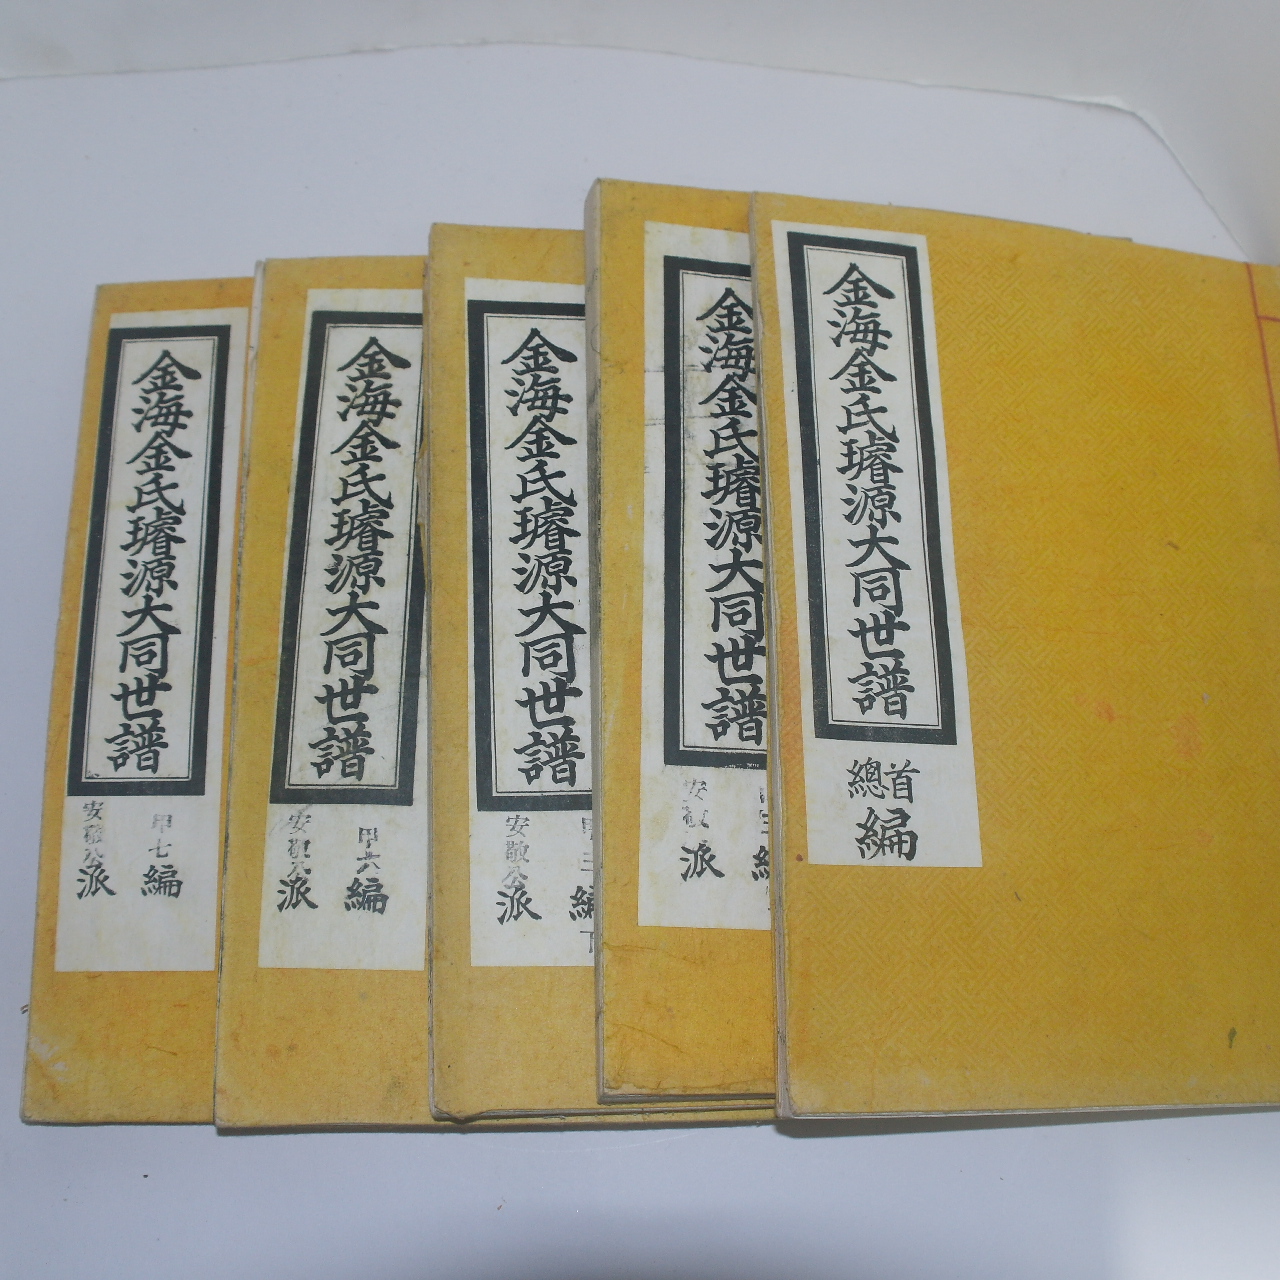 金海金氏璿源大同世譜
安敬公派
甲七編
金海金氏璿源大同世譜
安敬公派
甲六編
金海金氏璿源大同世譜
安敬公派
編
下
金海金氏璿源大同世譜
安敬
派
編
金海金氏璿源大同世譜
總首
編